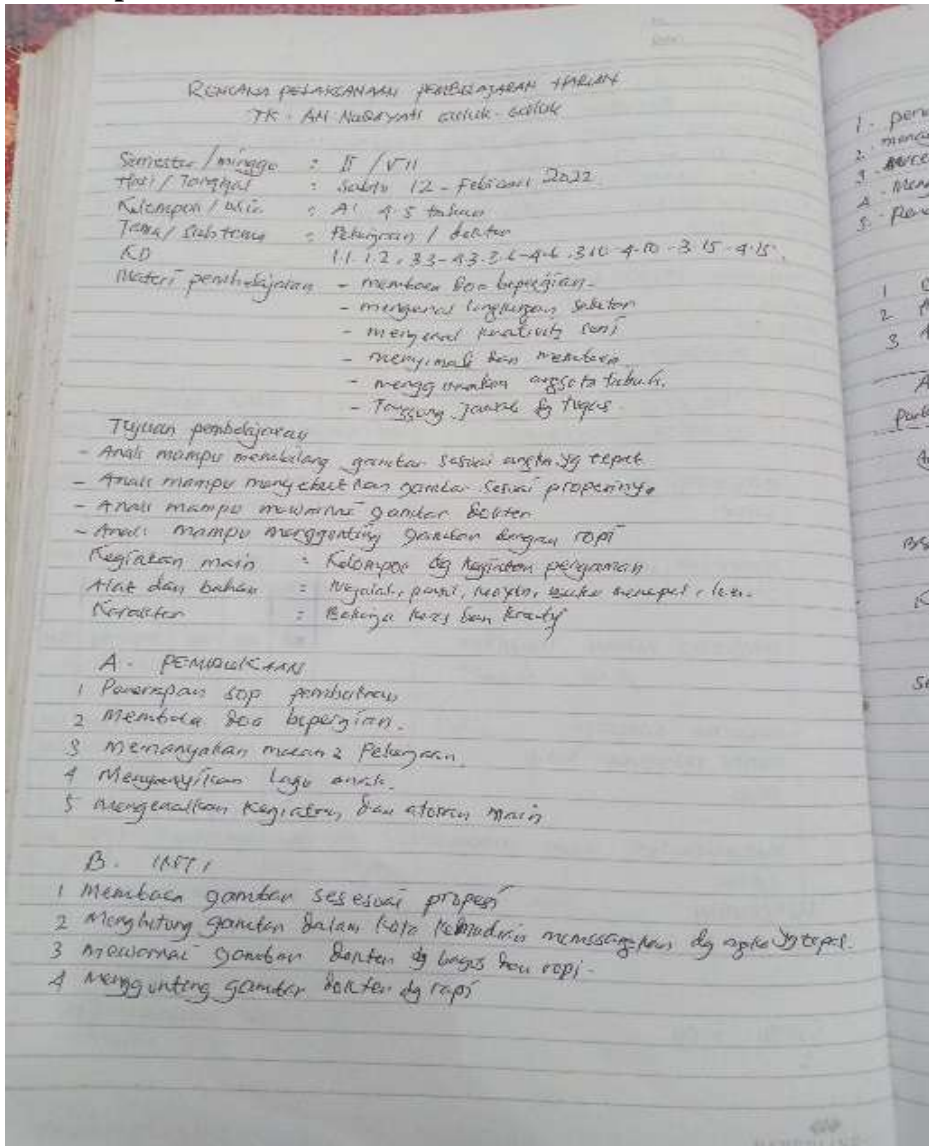 RENCANA PELAKSANAAN PEMBELAJARAN HARIAN
TK. AN-NUQAYAH
Semester / minggu : II / VII
Hari / Tanggal : Sabtu 12 - Februari 2022
Kelompok / usia : A1 4-5 tahun
Tema / Subtema : Pekerjaan / dokter
KD 1.1. 1.2. 3.3-4.3. 3.6-4.6. 3.10-4.10-3.15-4.15.
Materi pembelajaran - membaca doa bepergian-
- mengenal lingkungan sekitar
- mengenal seni
- menyimak dan membaca
- menggunakan anggota tubuh.
- Tanggung jawab dg tugas
Tujuan pembelajaran
- Anak mampu membilang gambar sesuai angka yg tepat
- Anak mampu menyebutkan gambar sesuai
- Anak mampu mewarnai gambar dokter
- Anak mampu menggunting gambar dengan rapi
Kegiatan main : Kelompok dg kegiatan pengaman
Alat dan bahan : Majalah, pensil, buku menempel, lem.
Karakter : Bekerja keras dan
A. PEMBUKAAN
1 Penerapan SOP pembukaan
2 Membaca doa bepergian.
3 Menanyakan macam2 Pekerjaan.
4 Menyanyikan lagu anak.
5 Mengenalkan kegiatan dan aturan main
B. INTI
1 Membaca gambar sesesuai propesi
2 Menghitung gambar dalam kota kemudian memasangkan dg angka yg tepat.
3 Mewarnai gambar dokter dg bagus dan rapi-
4 Menggunting gambar dokter dg rapi
1. pen
2.
3.
4. Men
5.
1
2
3